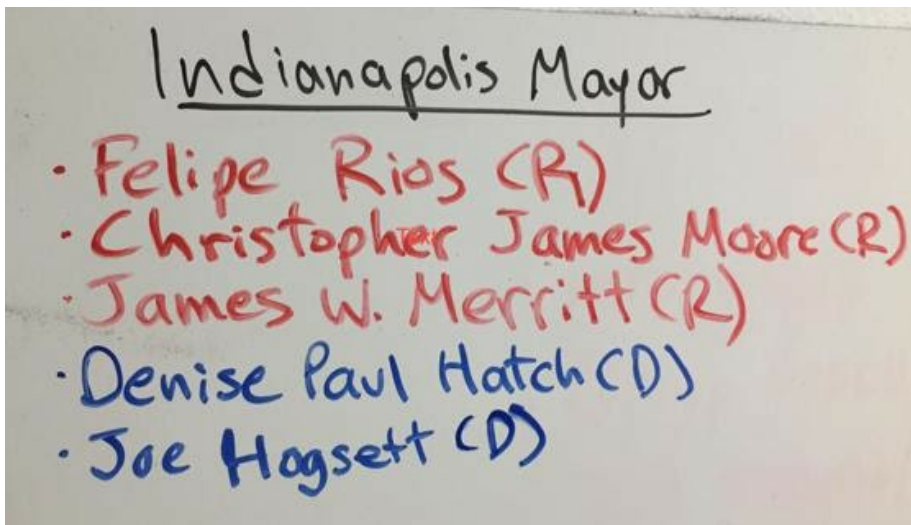 Indianapolis Mayor
· Felipe Rios (R)
· Christopher James Moore (R)
· James W. Merritt (R)
· Denise Paul Hatch (D)
· Joe Hogsett (D)